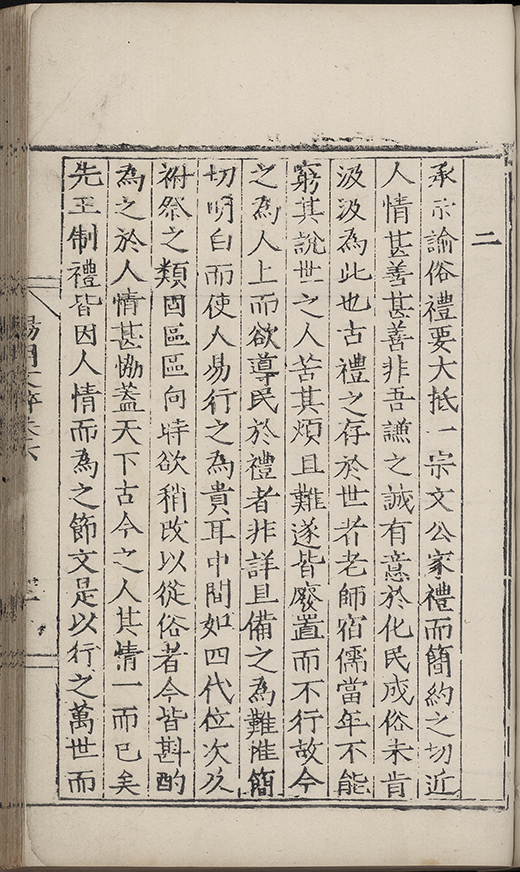 二
承示諭俗禮要大抵一宗文公家禮而簡約之切近
人情甚善甚善非吾謙之誠有意於化民成俗未肯
汲汲為此也古禮之存於世者老師宿儒當年不能
窮其說世之人苦其煩且難遂皆廢置而不行故今
之為人上而欲導民於禮者非詳且備之為難惟簡
切明白而使人易行之為貴耳中間如四代位次及
祔祭之類固區區向時欲稍改以從俗者今皆斟酌
為之於人情甚恊蓋天下古今之人其情一而已矣
先王制禮皆因人情而為之節文是以行之萬世而
陽明文粹卷六